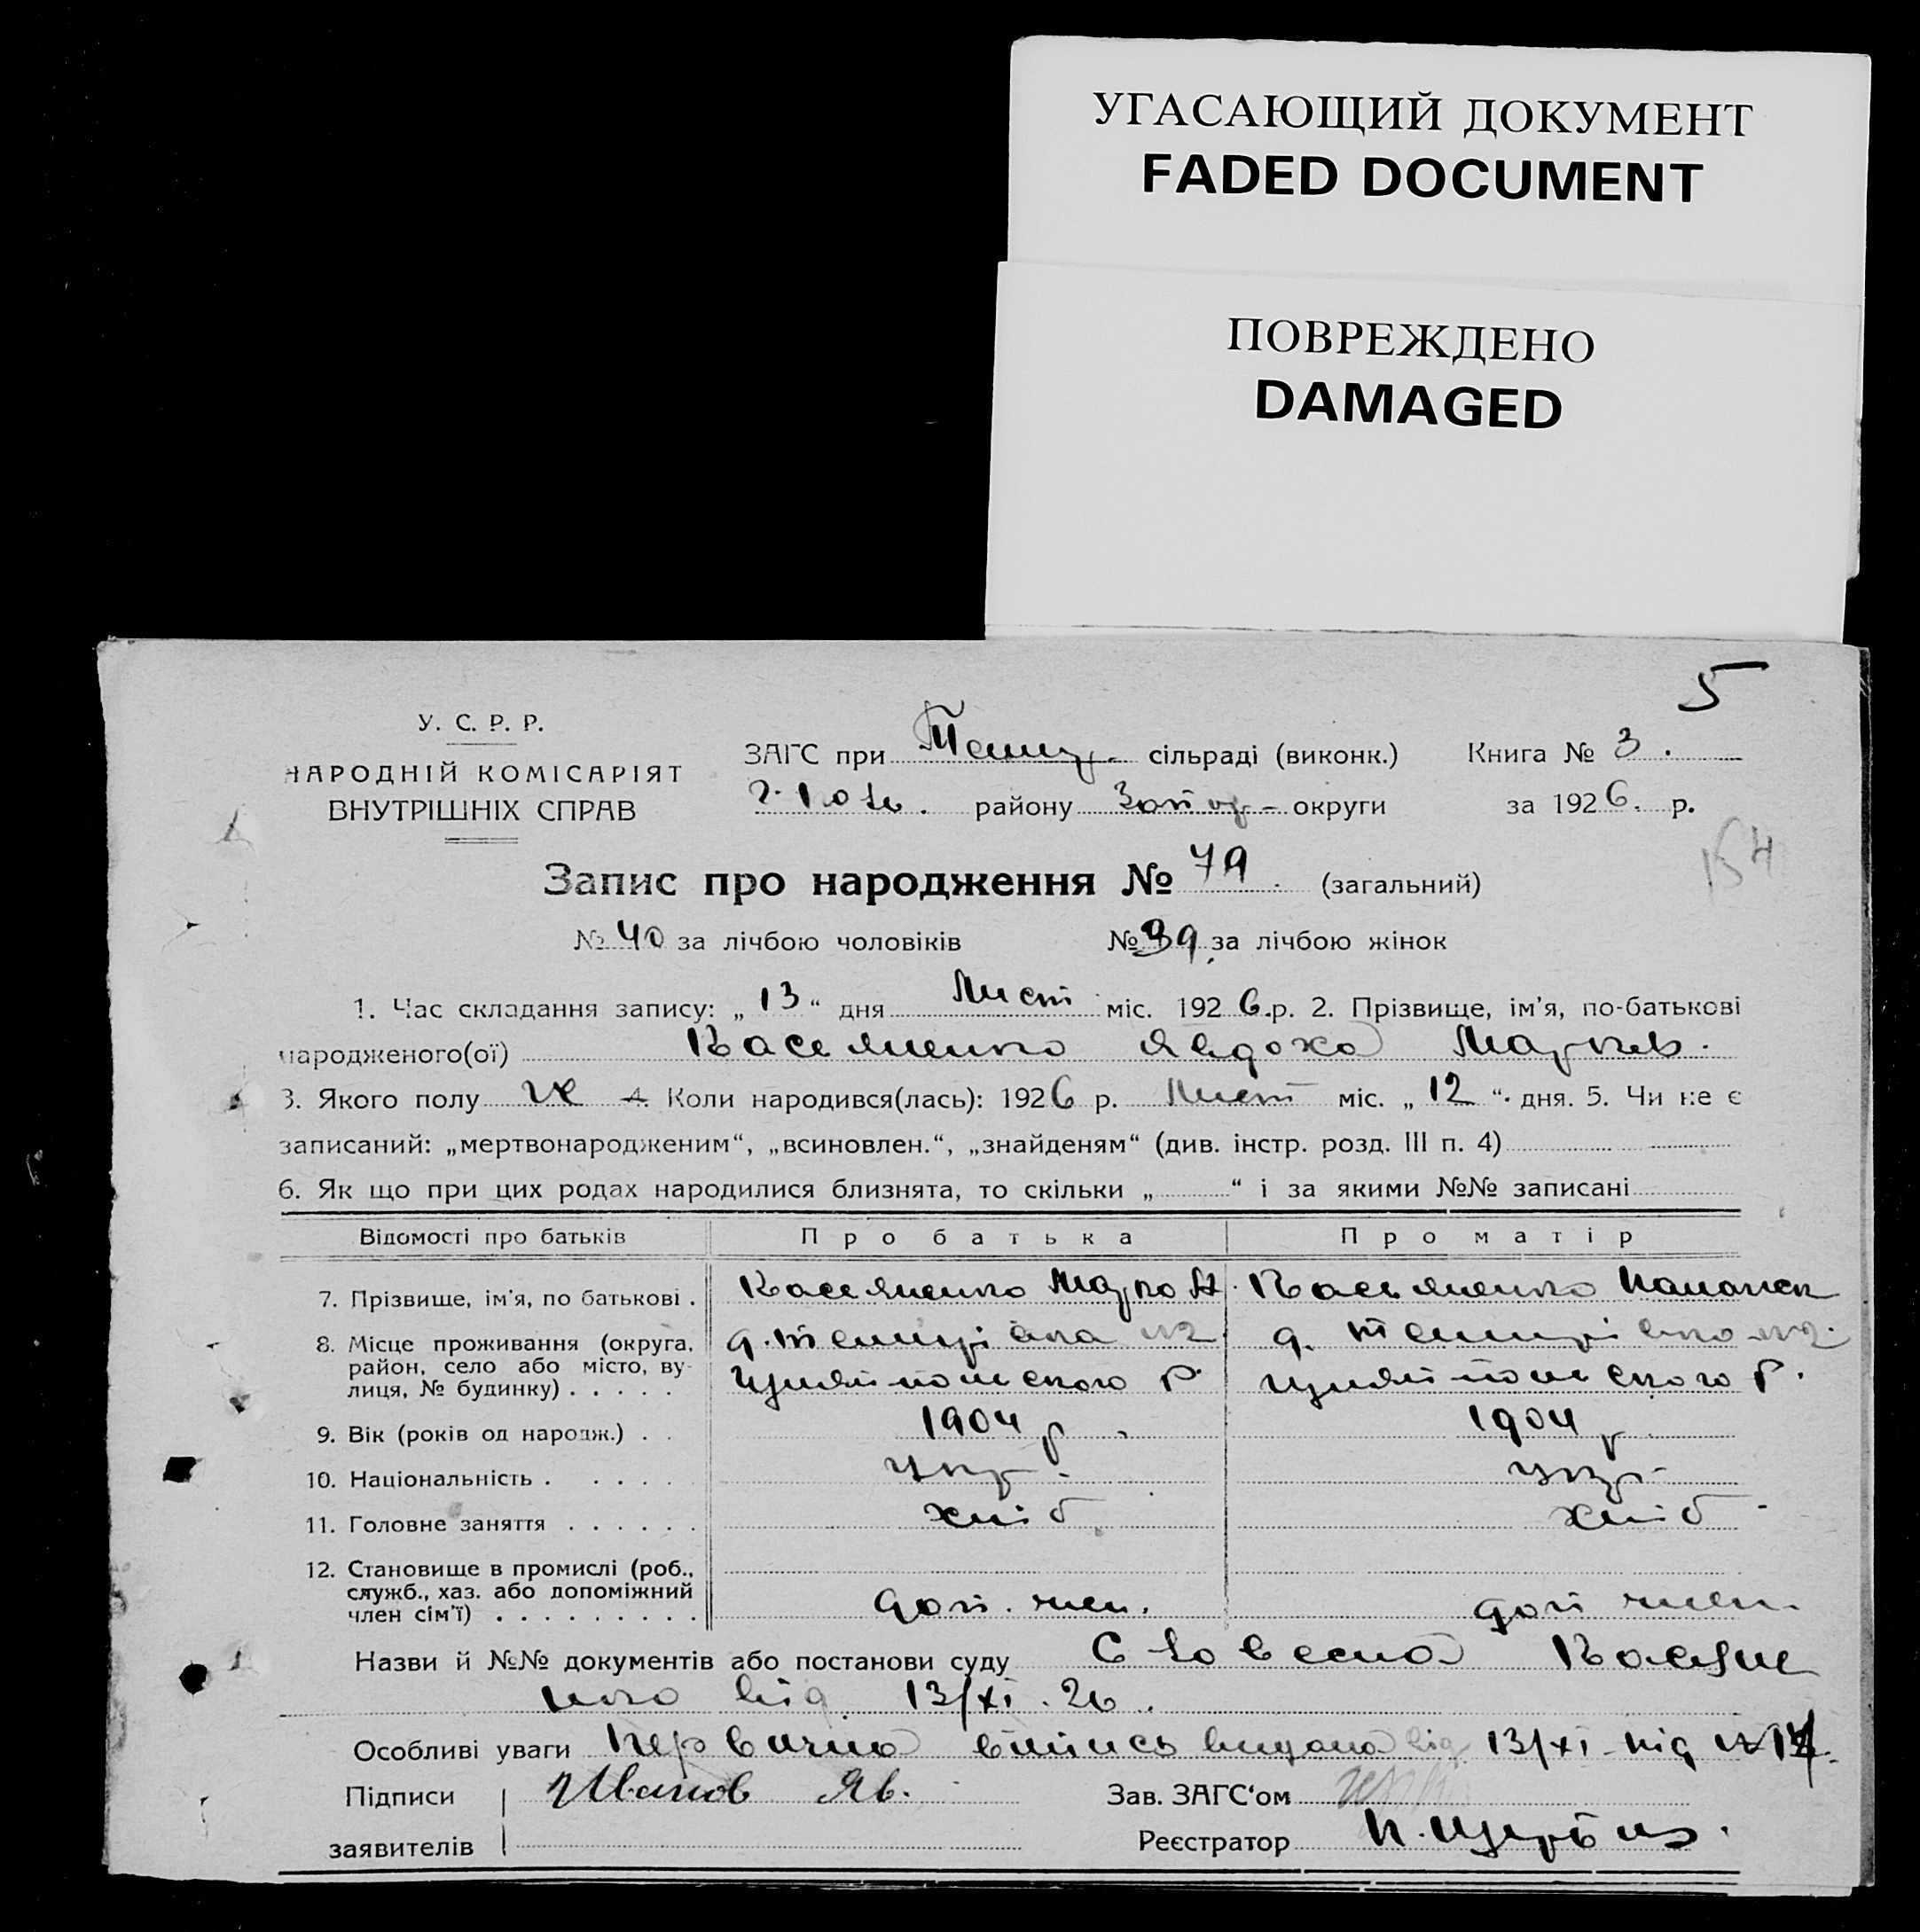 УГАСАЮЩИЙ ДОКУМЕНТ
FADED DOCUMENT
ПОВРЕЖДЕНО
DAMAGED
5
У. С. Р. Р.
НАРОДНІЙ КОМІСАРІЯТ
ВНУТРІШНІХ СПРАВ
ЗАГС при сільраді (виконк.) Книга № 3.
району округи за 1926. р.
154
Запис про народження № 79. (загальний)
№ 40 за лічбою чоловіків № 39. за лічбою жінок
1. Час складання запису: „13“ дня Лист міс. 1926.р. 2. Прізвище, ім'я, по-батькові
народженого(ої) Касяненко Явдоха Марков.
3. Якого полу ж 4. Коли народився(лась): 1926 р. Лист міс. „12“. дня. 5. Чи не є
записаний: „мертвонародженим“, „всиновлен.“, „знайденям“ (див. інстр. розд. III п. 4)
6. Як що при цих родах народилися близнята, то скільки „ “ і за якими №№ записані
Відомості про батьків Про батька Про матір
7. Прізвище, ім'я, по батькові . Касяненко Марко Касьяненко
8. Місце проживання (округа,
район, село або місто, ву-
лиця, № будинку) . . . . .
9. Вік (років од народж.) . . 1904 р. 1904 р.
10. Національність . . . . . Укр. Укр.
11. Головне заняття . . . . . . хліб хліб
12. Становище в промислі (роб.,
служб., хаз. або допоміжний
член сім'ї) . . . . . . . . . доп. член. доп член.
Назви й №№ документів або постанови суду Словесна Касяне
нко від 13/XI. 26.
Особливі уваги Первична випись видана від 13/XI під №
Підписи Иванов Яв. Зав. ЗАГС'ом
заявителів Реєстратор